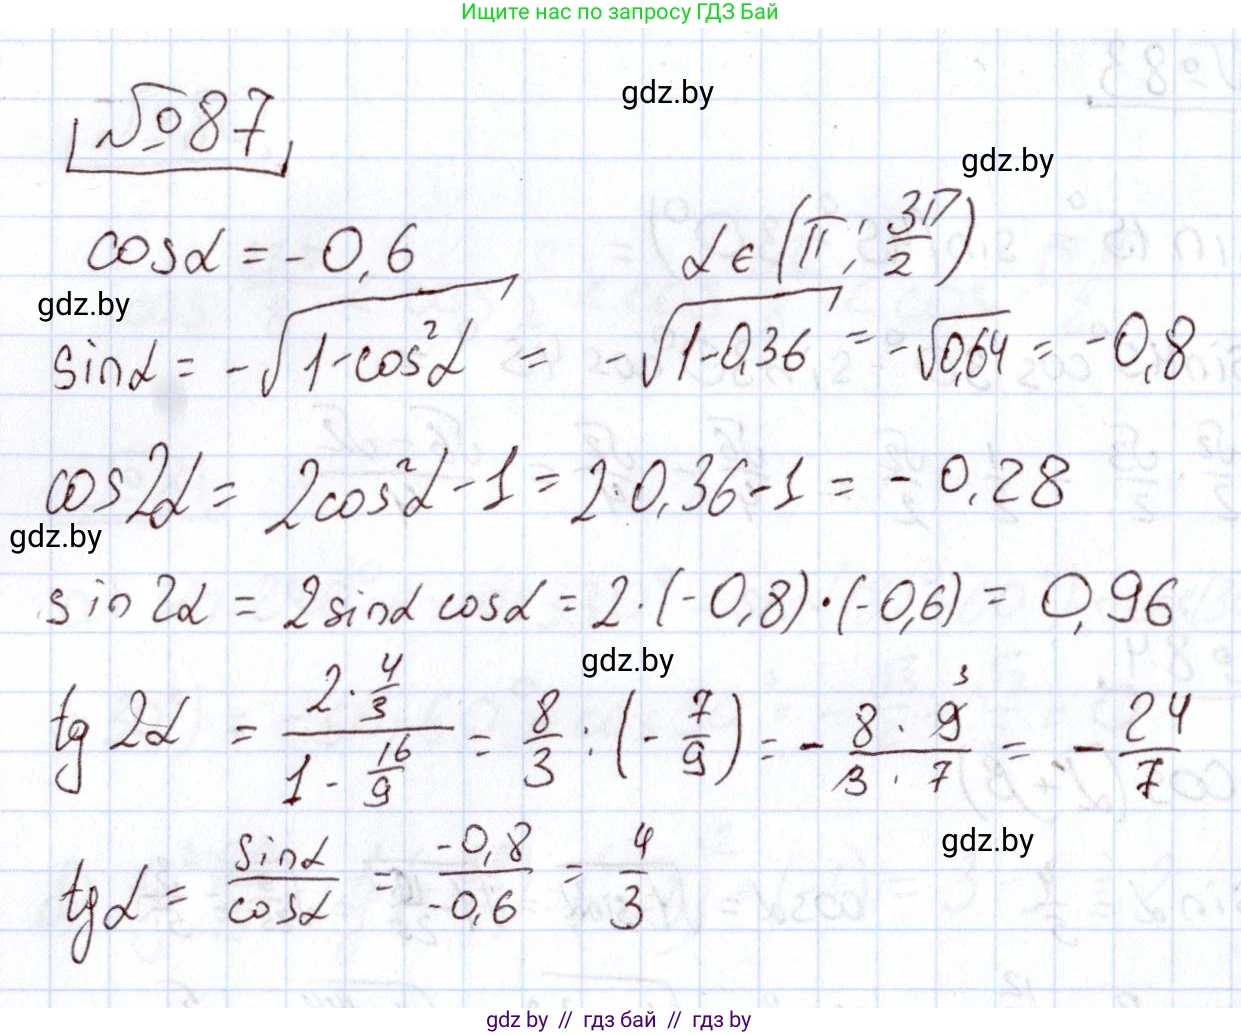 Ищите нас по запросу ГДЗ Бай
gdz.by
№87
gdz.by
cosα = -0,6   α ∈ (π; 3π/2)
gdz.by
sinα = -√(1-cos²α) = -√(1-0,36) = -√0,64 = -0,8
cos2α = 2cos²α-1 = 2·0,36-1 = -0,28
gdz.by
sin2α = 2sinα cosα = 2·(-0,8)·(-0,6) = 0,96
gdz.by
tg 2α = (2·4/3)/(1-16/9) = 8/3 : (-7/9) = -(8·9 3)/(3·7) = -24/7
gdz.by
tgα = sinα/cosα = -0,8/-0,6 = 4/3
gdz by // гдз бай // гдз by